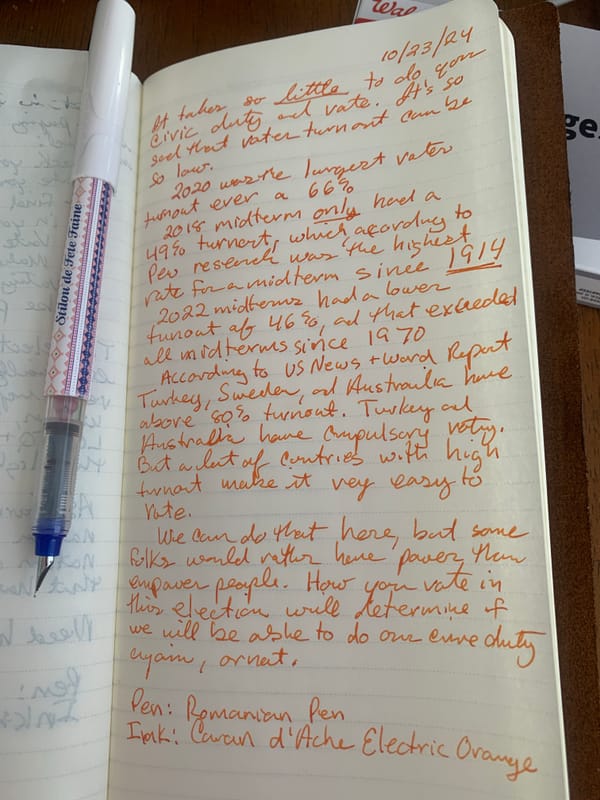 10/23/24
It takes so little to do your
civic duty and vote. It's so
sad that voter turnout can be
so low.
2020 was the largest voter
turnout ever a 66%
2018 midterm only had a
49% turnout, which according to
Pew research was the highest
rate for a midterm since 1914
2022 midterms had a lower
turnout of 46%, ad that exceeded
all midterms since 1970
According to US News + Word Report
Turkey, Sweden, ad Australia have
above 80% turnout. Turkey ad
Australia have compulsory voting.
But a lot of contries with high
turnout make it very easy to
vote.
We can do that here, but some
folks would rather have power than
empower people. How you vote in
this election will determine if
we will be able to do our civic duty
again, or not.
Pen: Romanian Pen
Ink: Caran d'Ache Electric Orange
Stilou de Fete Faine
Wal
ge
Need
Pen:
Ink: